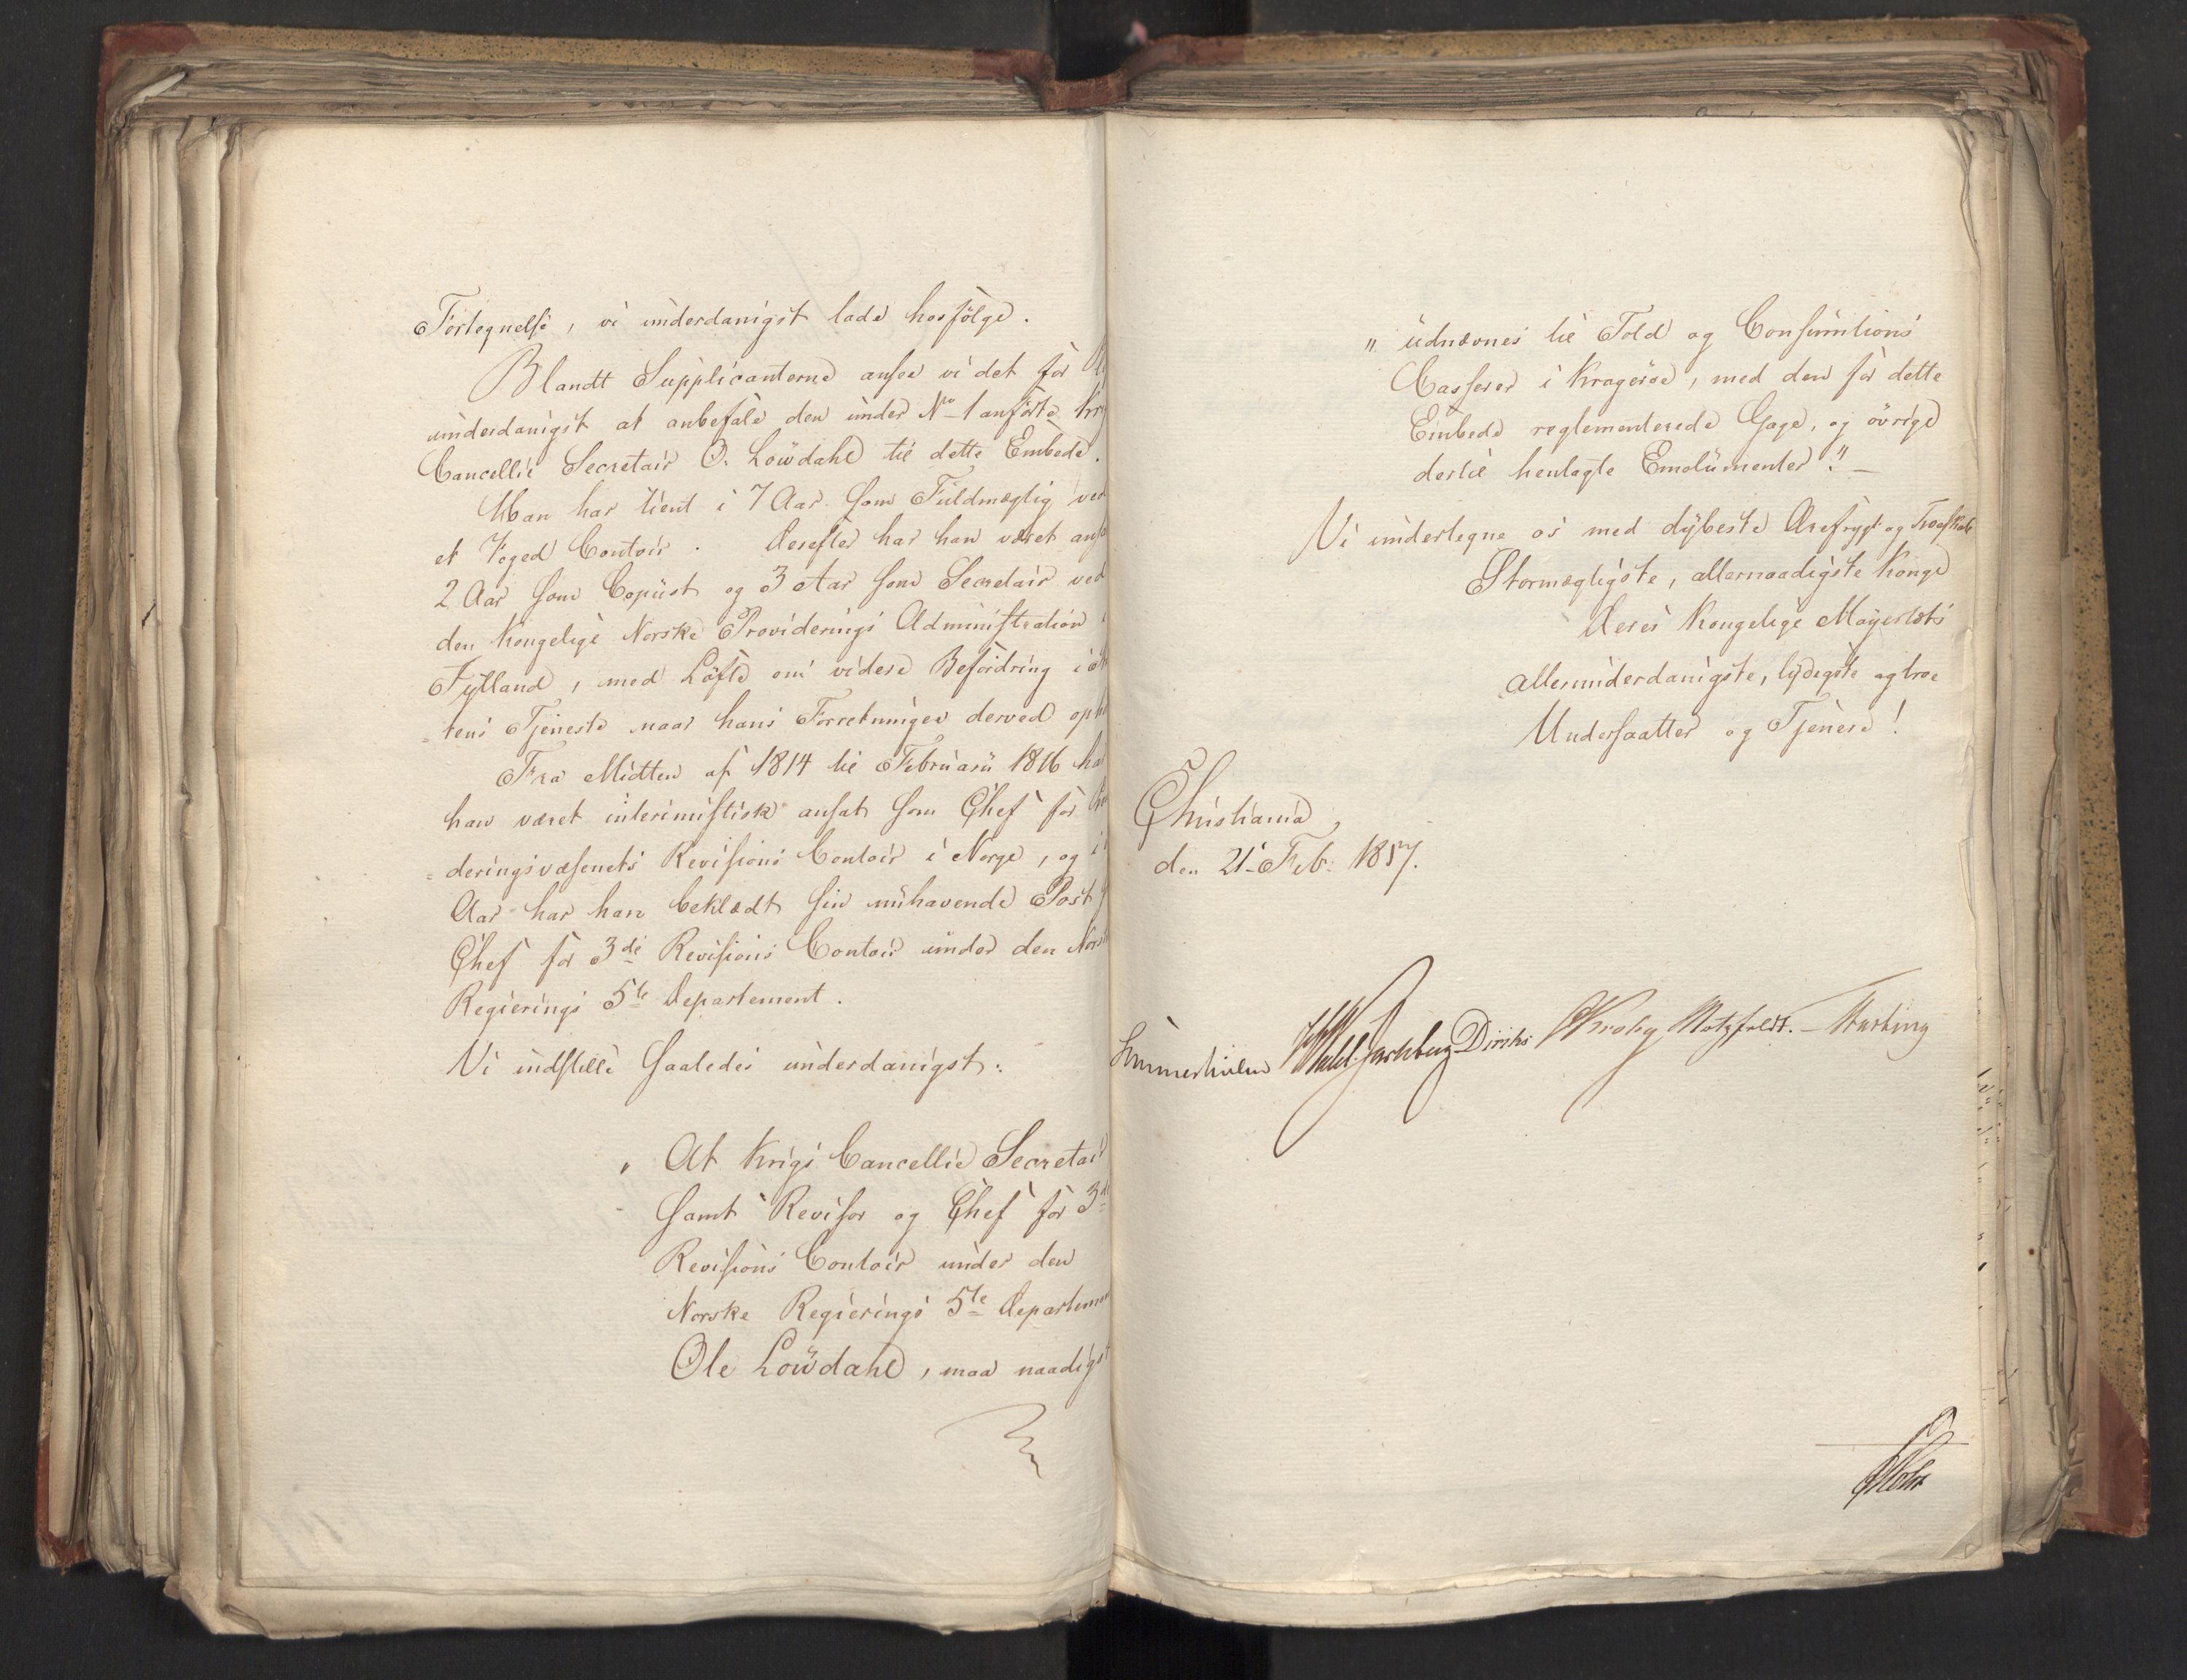 Fortegnelse, vi underdanigst lade hosfölge.
Blandt Supplicanterne ansee vi det for
underdanigst at anbefale den under No 1 anförte
Cancellie Secretair O. Löwdahl til dette Embede.
Han har tient i 7 Aar som Fuldmægtig ved
et Foged Contoir. Derefter har han været
2 Aar som Copiist og 3 Aar som Secretair ved
den Kongelige Norske Providerings Administration
Jylland, med Löfte om videre Befordring i
=tens Tjeneste naar hans Forretninger derved
Fra Midten af 1814 til Februarii 1816 har
han været interimistisk ansat som Chef for
=deringsvæsenets Revisions Contoir i Norge, og
Aar har han beklædt sin nuhavende Post
Chef for 3die Revisions Contoir under den
Regierings 5te Departement.
Vi indstille saaledes underdanigst:
" At Krigs Cancellie Secretair
samt Revisor og Chef for 3die
Revisions Contoir under den
Norske Regierings 5te Departement
Ole Löwdahl, maa naadigst
" udnævnes til Told og Consumtions
Casserer i Krageröe, med den for dette
Embede reglementerede Gage, og övrige
dertil henlagte Emolumenter." —
Vi undertegne os med dybeste Ærefrygt og Troeskab
Stormægtigste, allernaadigste Konge
Deres Kongelige Mayestæts
allerunderdanigste, lydigste og troe
Undersaatter og Tjenere!
Christiania,
den 21 Feb. 1817.
Sommerhielm Diriks Krohg Motzfeldt.